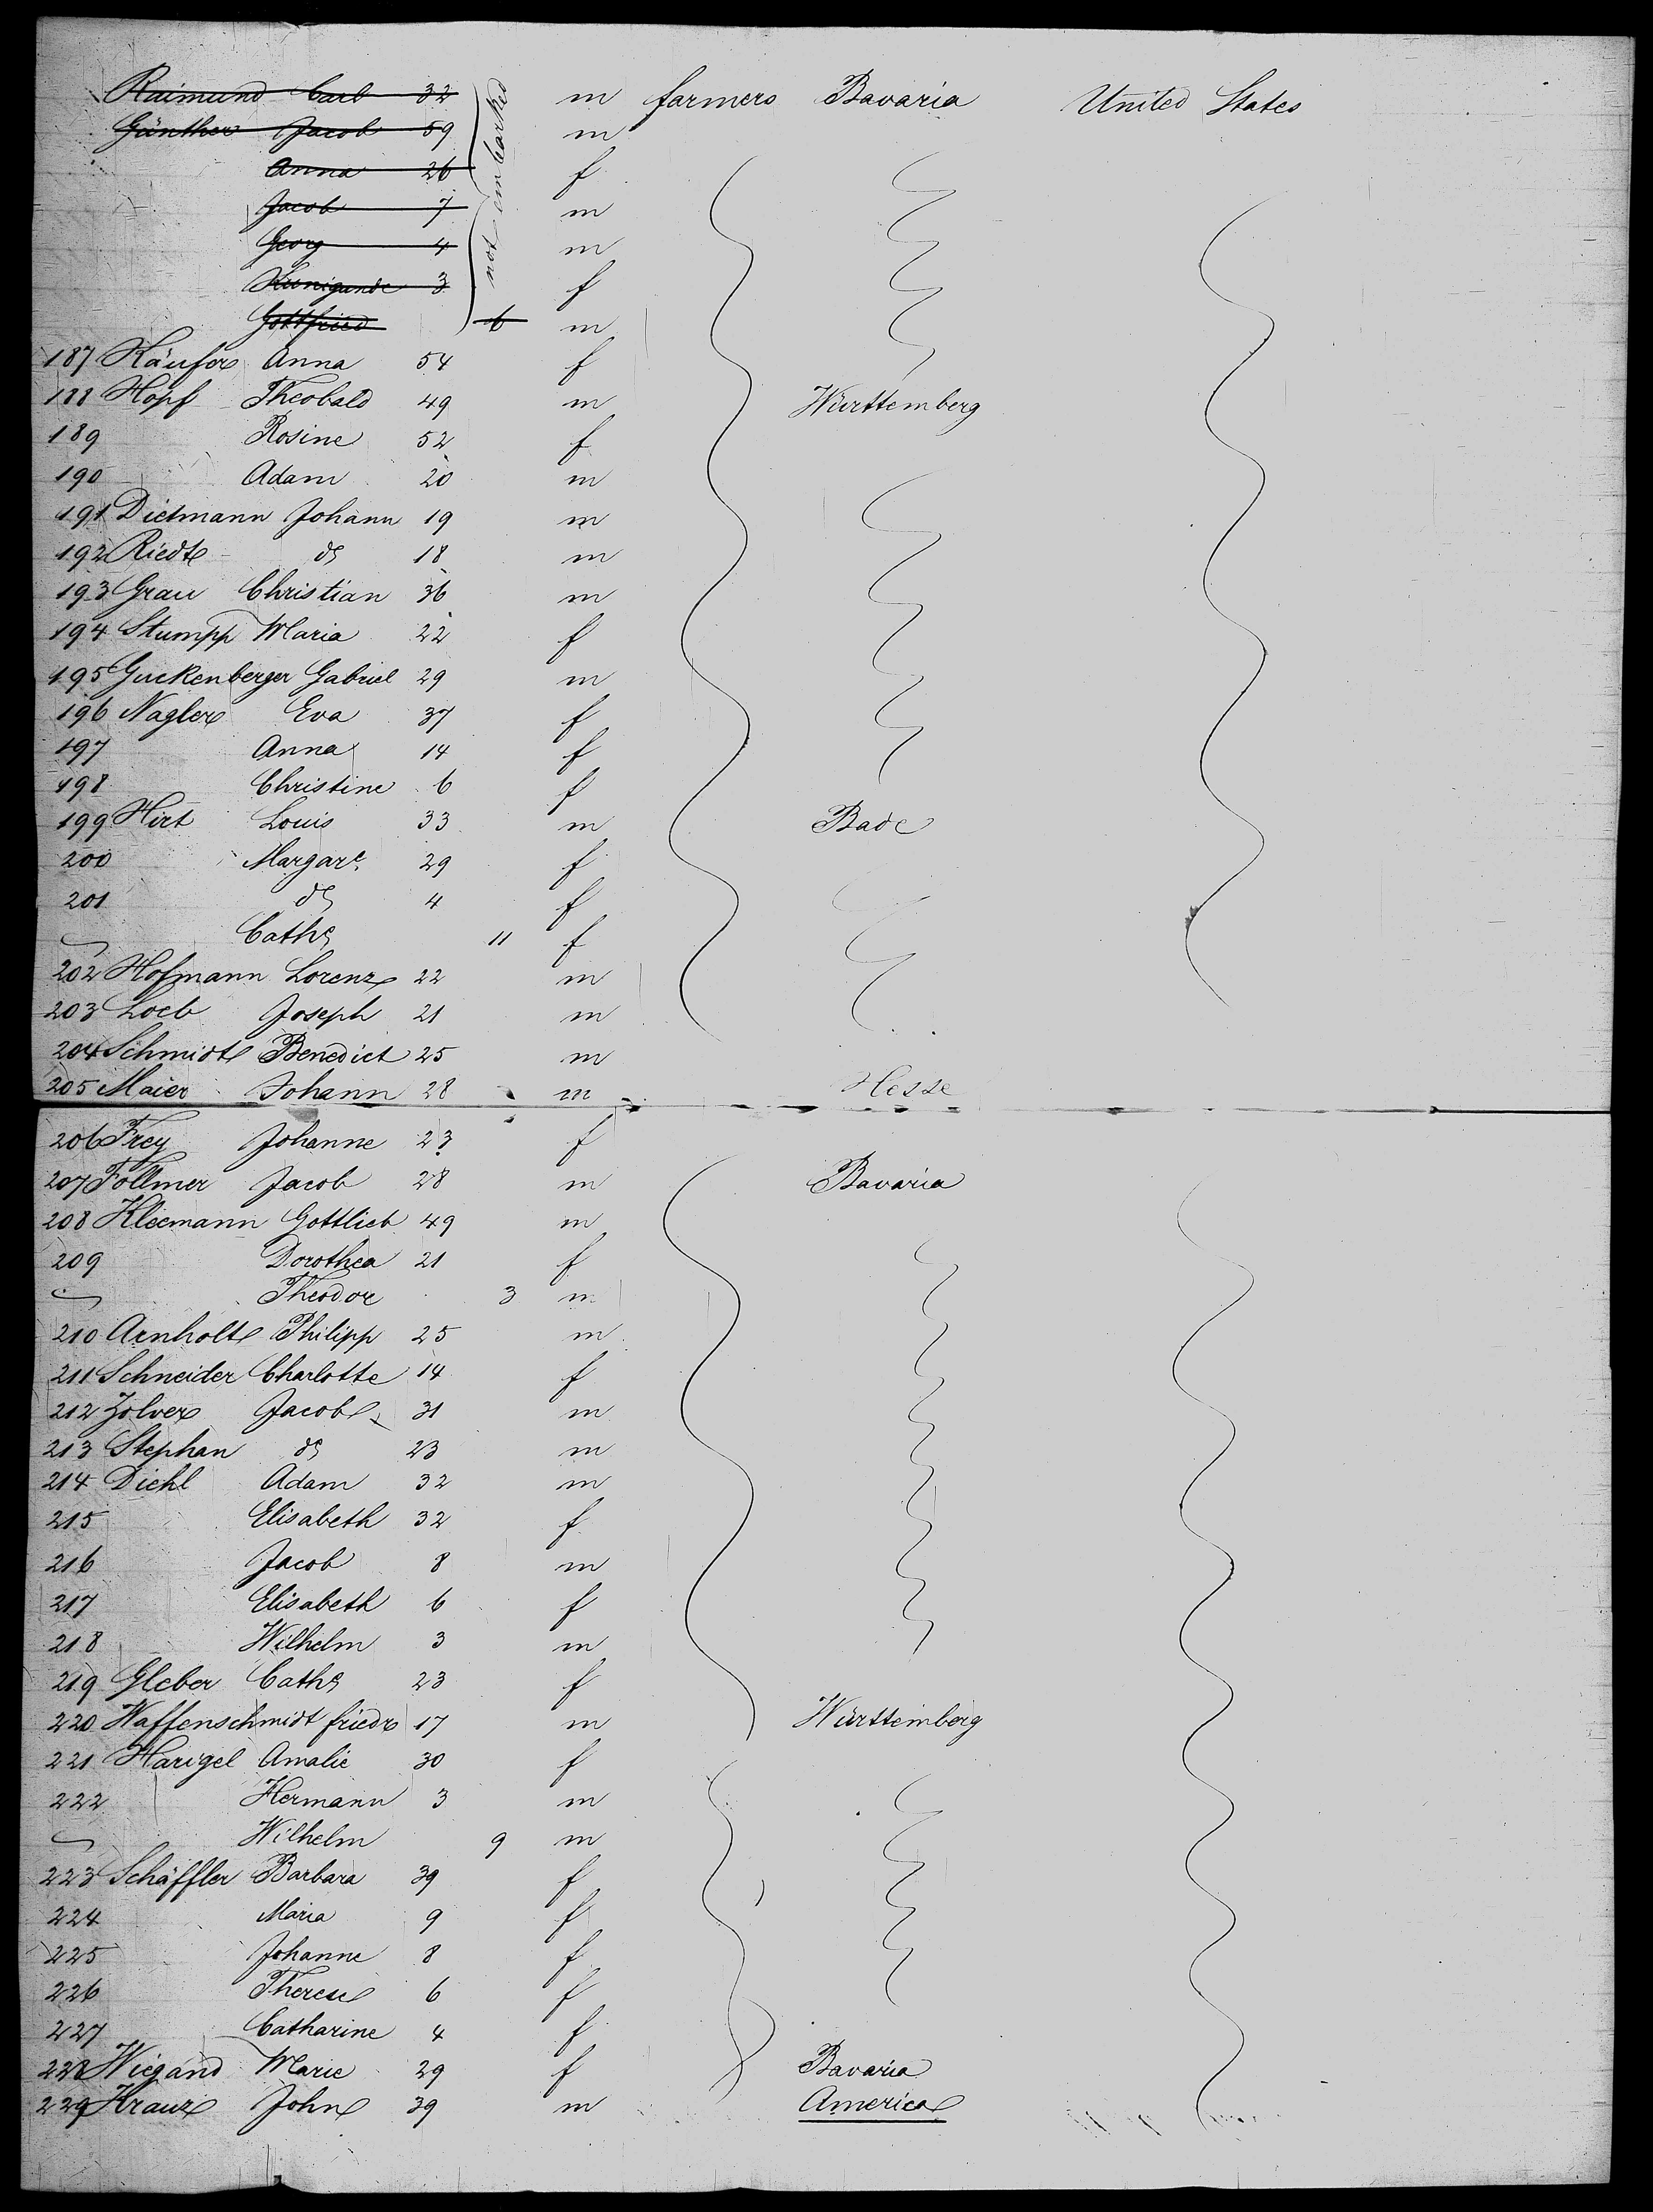 Raimund Carl 32 m farmers Bavaria United States
Günther Jacob 59 m
not embarked
Anna 26 f
Jacob 7 m
Georg 4 m
Kunigunde 3 f
Gottfried 6 m
187 Käufer Anna 54 f
188 Hopf Theobald 49 m Württemberg
189 Rosine 52 f
190 Adam 20 m
191 Dietmann Johann 19 m
192 Riedt do 18 m
193 Grau Christian 36 m
194 Stumpp Maria 22 f
195 Guckenberger Gabriel 29 m
196 Nagler Eva 37 f
197 Anna 14 f
198 Christine 6 f
199 Hirt Louis 33 m Bade
200 Margare. 29 f
201 do 4 f
Cathe 11 f
202 Hofmann Lorenz 22 m
203 Loeb Joseph 21 m
204 Schmidt Benedict 25 m
205 Maier Johann 28 m Hesse
206 Frey Johanne 23 f
207 Follmer Jacob 28 m Bavaria
208 Kleemann Gottlieb 49 m
209 Dorothea 21 f
Theodor 3 m
210 Arnholt Philipp 25 m
211 Schneider Charlotte 14 f
212 Zolver Jacob 31 m
213 Stephan do 23 m
214 Diehl Adam 32 m
215 Elisabeth 32 f
216 Jacob 8 m
217 Elisabeth 6 f
218 Wilhelm 3 m
219 Gleber Cathe 23 f
220 Waffenschmidt friedr 17 m Württemberg
221 Harigel Amalie 30 f
222 Hermann 3 m
Wilhelm 9 m
223 Schäffler Barbara 39 f
224 Maria 9 f
225 Johanne 8 f
226 Therese 6 f
227 Catharine 4 f
228 Wiegand Marie 29 f Bavaria
229 Kraus John 39 m America